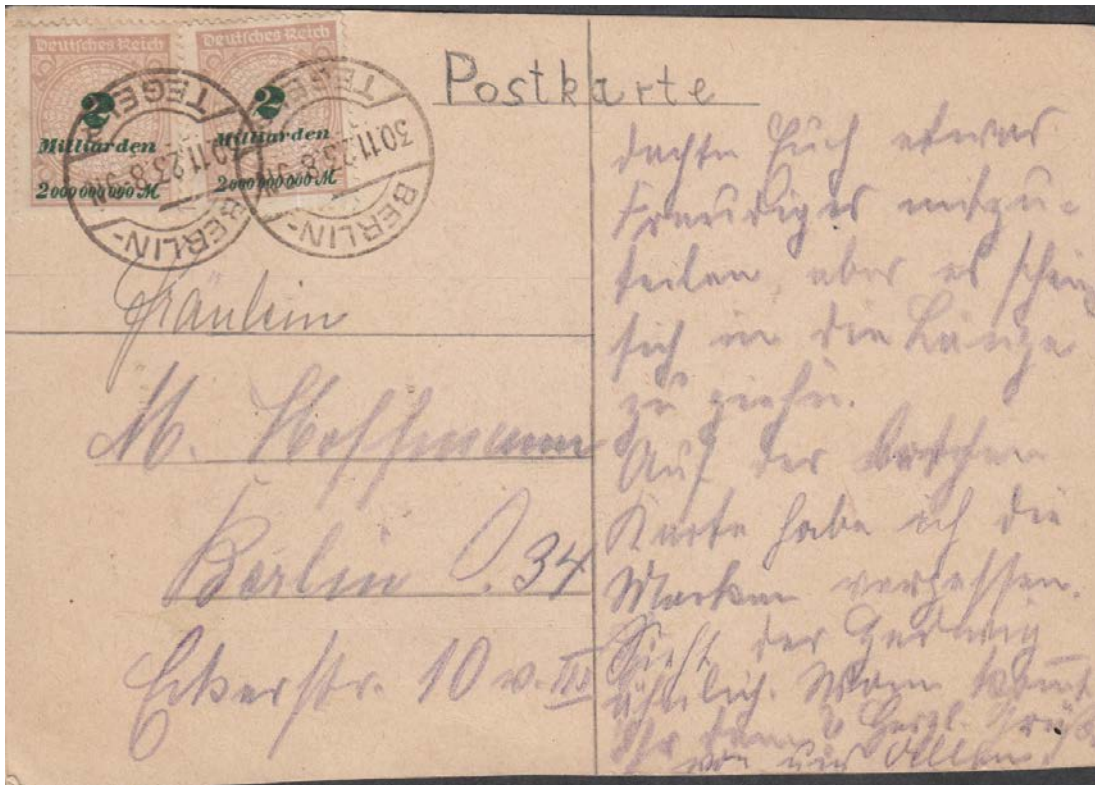 Deutsches Reich
2
Milliarden
2000000000 M
Deutsches Reich
2
Milliarden
2000000000 M
BERLIN-TEGEL
30.11.23.8-9N
BERLIN-TEGEL
30.11.23.8-9N
Postkarte
Fräulein
M. Hoffmann
Berlin O. 34
Eckerstr. 10 v. III
dachte Euch etwas
Freudiges mitzu-
teilen, aber es scheint
sich in die Länge
zu ziehn.
Auf der
Karte habe ich die
Marken vergessen.
Sieht der Hedwig
ähnlich. Wann kommt
Ihr denn? Herzl. Grüße
von uns Allen.